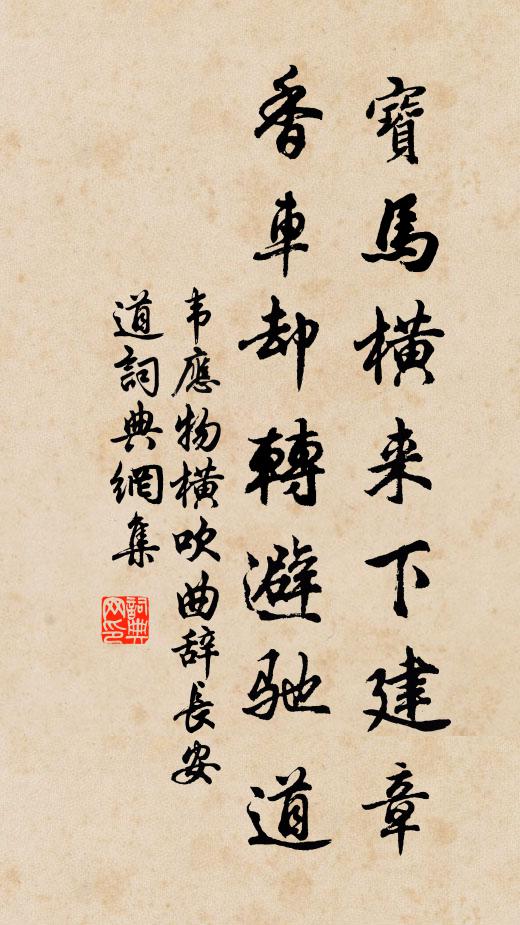 寶馬橫来下建章
香車却轉避馳道
韦應物橫吹曲辞長安
道詞典網集
詞典网印